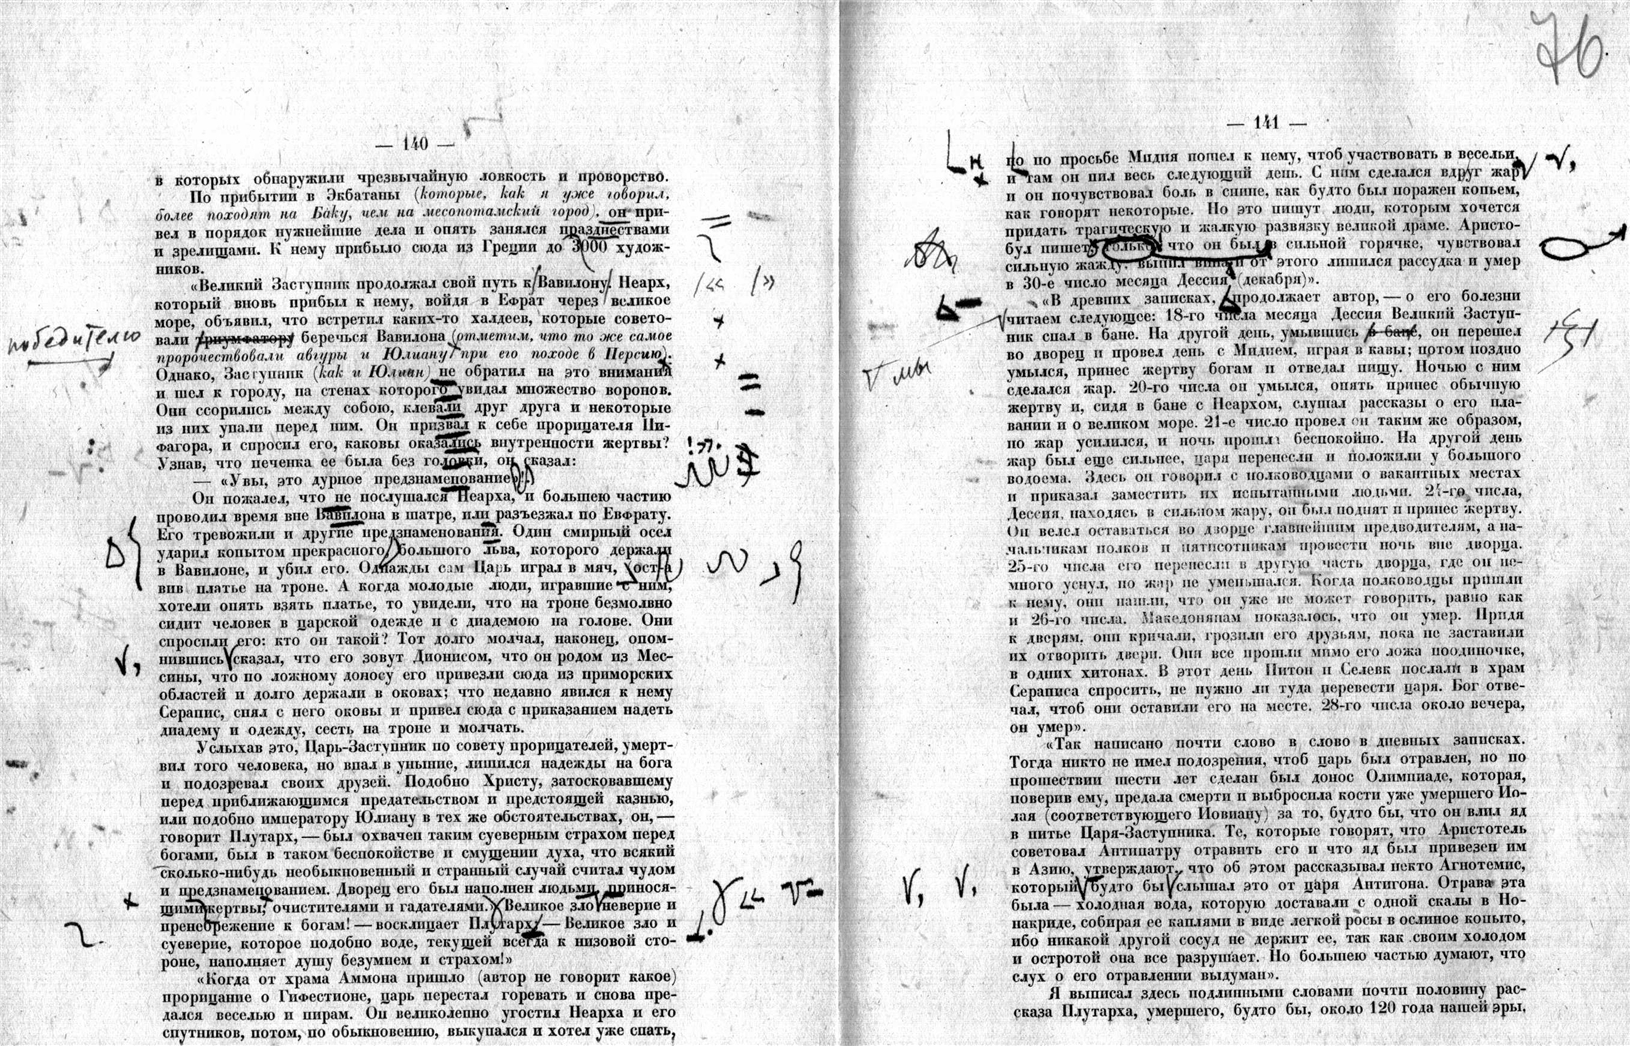 — 140 —
в которых обнаружили чрезвычайную ловкость и проворство.
По прибытии в Экбатаны (которые, как я уже говорил,
более походят на Баку, чем на месопотамский город), он при-
вел в порядок нужнейшие дела и опять занялся празднествами
и зрелищами. К нему прибыло сюда из Греции до 3000 худож-
ников.
«Великий Заступник продолжал свой путь к Вавилону. Неарх,
который вновь прибыл к нему, войдя в Ефрат через великое
море, объявил, что встретил каких-то халдеев, которые совето-
победителю
вали триумфатору беречься Вавилона (отметим, что то же самое
пророчествовали авгуры и Юлиану при его походе в Персию).
Однако, Заступник (как и Юлиан) не обратил на это внимания
и шел к городу, на стенах которого увидал множество воронов.
Они ссорились между собою, клевали друг друга и некоторые
из них упали перед ним. Он призвал к себе прорицателя Пи-
фагора, и спросил его, каковы оказались внутренности жертвы?
Узнав, что печенка ее была без головки, он сказал:
— «Увы, это дурное предзнаменование»!
Он пожалел, что не послушался Неарха, и большею частию
проводил время вне Вавилона в шатре, или разъезжал по Евфрату.
Его тревожили и другие предзнаменования. Один смирный осел
ударил копытом прекрасного большого льва, которого держали
в Вавилоне, и убил его. Однажды сам Царь играл в мяч, оста-
вив платье на троне. А когда молодые люди, игравшие с ним,
хотели опять взять платье, то увидели, что на троне безмолвно
сидит человек в царской одежде и с диадемою на голове. Они
спросили его: кто он такой? Тот долго молчал, наконец, опом-
нившись сказал, что его зовут Дионисом, что он родом из Мес-
сины, что по ложному доносу его привезли сюда из приморских
областей и долго держали в оковах; что недавно явился к нему
Серапис, снял с него оковы и привел сюда с приказанием надеть
диадему и одежду, сесть на троне и молчать.
Услыхав это, Царь-Заступник по совету прорицателей, умерт-
вил того человека, но впал в уныние, лишился надежды на бога
и подозревал своих друзей. Подобно Христу, затосковавшему
перед приближающимся предательством и предстоящей казнью,
или подобно императору Юлиану в тех же обстоятельствах, он, —
говорит Плутарх, — был охвачен таким суеверным страхом перед
богами, был в таком беспокойстве и смущении духа, что всякий
сколько-нибудь необыкновенный и странный случай считал чудом
и предзнаменованием. Дворец его был наполнен людьми, принося-
щими жертвы, очистителями и гадателями. Великое зло неверие и
пренебрежение к богам! — восклицает Плутарх, — Великое зло и
суеверие, которое подобно воде, текущей всегда к низовой сто-
роне, наполняет душу безумием и страхом!»
«Когда от храма Аммона пришло (автор не говорит какое)
прорицание о Гифестионе, царь перестал горевать и снова пре-
дался веселью и пирам. Он великолепно угостил Неарха и его
спутников, потом, по обыкновению, выкупался и хотел уже спать,
76
— 141 —
но по просьбе Мидия пошел к нему, чтоб участвовать в весельи,
и там он пил весь следующий день. С ним сделался вдруг жар
и он почувствовал боль в спине, как будто был поражен копьем,
как говорят некоторые. Но это пишут люди, которым хочется
придать трагическую и жалкую развязку великой драме. Аристо-
бул пишет только, что он был в сильной горячке, чувствовал
сильную жажду, выпил вина и от этого лишился рассудка и умер
в 30-е число месяца Дессия (декабря)».
«В древних записках, продолжает автор, — о его болезни
читаем следующее: 18-го числа месяца Дессия Великий Заступ-
ник спал в бане. На другой день, умывшись в бане, он перешел
мы
во дворец и провел день с Мидием, играя в кавы; потом поздно
умылся, принес жертву богам и отведал пищу. Ночью с ним
сделался жар. 20-го числа он умылся, опять принес обычную
жертву и, сидя в бане с Неархом, слушал рассказы о его пла-
вании и о великом море. 21-е число провел он таким же образом,
но жар усилился, и ночь прошла беспокойно. На другой день
жар был еще сильнее, царя перенесли и положили у большого
водоема. Здесь он говорил с полководцами о вакантных местах
и приказал заместить их испытанными людьми. 24-го числа,
Дессия, находясь в сильном жару, он был поднят и принес жертву.
Он велел оставаться во дворце главнейшим предводителям, а на-
чальникам полков и пятисотникам провести ночь вне дворца.
25-го числа его перенесли в другую часть дворца, где он не-
много уснул, но жар не уменьшался. Когда полководцы пришли
к нему, они нашли, что он уже не может говорить, равно как
и 26-го числа. Македонянам показалось, что он умер. Придя
к дверям, они кричали, грозили его друзьям, пока не заставили
их отворить двери. Они все прошли мимо его ложа поодиночке,
в одних хитонах. В этот день Питон и Селевк послали в храм
Сераписа спросить, не нужно ли туда перевести царя. Бог отве-
чал, чтоб они оставили его на месте. 28-го числа около вечера,
он умер».
«Так написано почти слово в слово в дневных записках.
Тогда никто не имел подозрения, чтоб царь был отравлен, но по
прошествии шести лет сделан был донос Олимпиаде, которая,
поверив ему, предала смерти и выбросила кости уже умершего Ио-
лая (соответствующего Иовиану) за то, будто бы, что он влил яд
в питье Царя-Заступника. Те, которые говорят, что Аристотель
советовал Антипатру отравить его и что яд был привезен им
в Азию, утверждают, что об этом рассказывал некто Агнотемис,
который будто бы слышал это от царя Антигона. Отрава эта
была — холодная вода, которую доставали с одной скалы в Но-
накриде, собирая ее каплями в виде легкой росы в ослиное копыто,
ибо никакой другой сосуд не держит ее, так как своим холодом
и остротой она все разрушает. Но большею частью думают, что
слух о его отравлении выдуман».
Я выписал здесь подлинными словами почти половину рас-
сказа Плутарха, умершего, будто бы, около 120 года нашей эры,